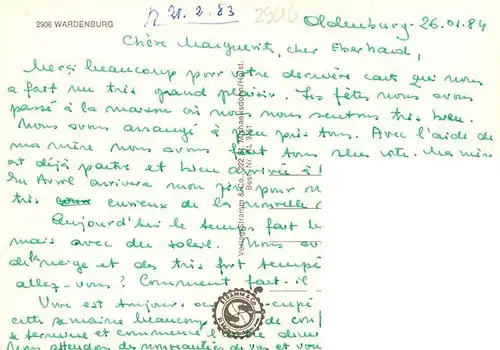 2906 WARDENBURG
21.2.83
2906
Oldenburg - 26.01.84
Chère Marguerite, cher Eberhard,
Merci beaucoup pour votre dernière carte qui nous
a fait un très grand plaisir. Les fêtes nous avons
passé à la maison où nous nous sentons très bien.
Nous avons arrangé à peu près tous. Avec l'aide de
ma mère nous avons fait tous plus vite. Ma mère
est déjà partie et bien arrivée à
En Avril arrivera mon père pour
très curieux de la nouvelle
Aujourd'hui le temps fait
mais avec du soleil. Nous
de la neige et des très fort
allez-vous? Comment fait-il
Uwe est toujours occupé
cette semaine beaucoup de
se termine et commence
Nous attendons des nouveautés de vous et
Verlag Stramm & Co., 222 St. Michaelisdonn/Holst.
Best.-Nr. WL 9
STRAMM & CO.